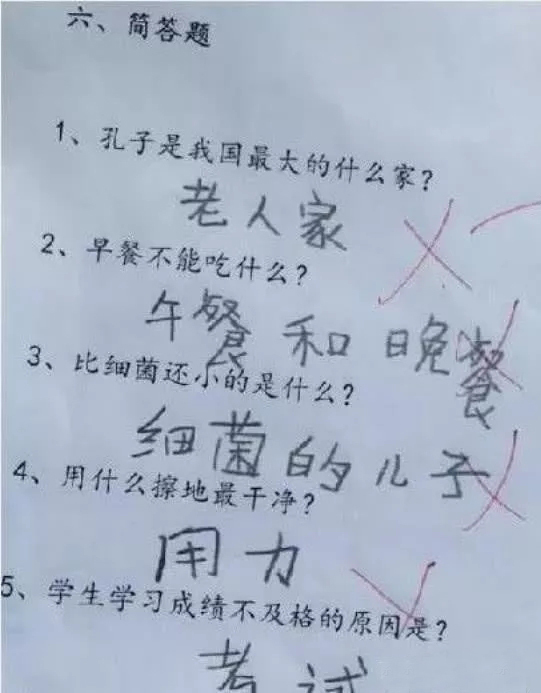 六、简答题
1、孔子是我国最大的什么家？
老人家
2、早餐不能吃什么？
午餐 和 晚餐
3、比细菌还小的是什么？
细菌的儿子
4、用什么擦地最干净？
用力
5、学生学习成绩不及格的原因是？
考试